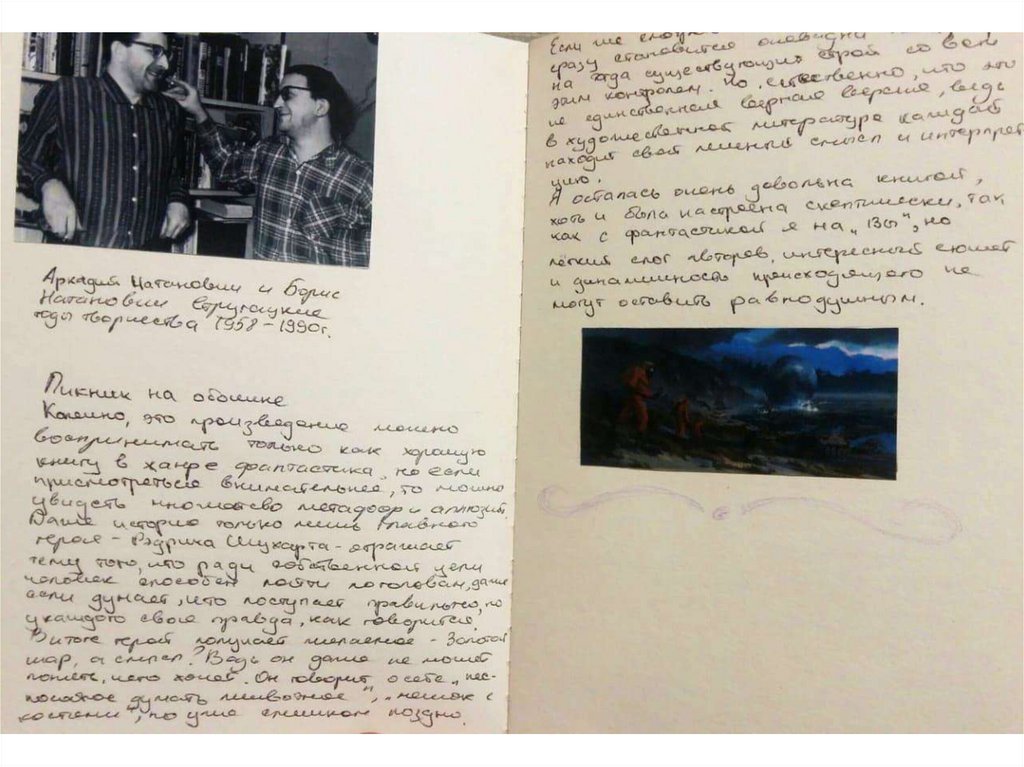 Аркадий Натанович и Борис
Натанович Стругацкие
годы творчества 1958-1990г.
Пикник на обочине
Конечно, это произведение можно
воспринимать только как хорошую
книгу в жанре фантастика, но если
присмотреться внимательнее, то можно
увидеть множество метафор и аллюзий
Даже история только лишь главного
героя - Рэдрика Шухарта - отражает
тему того, что ради собственной цели
человек способен пойти по головам, даже
если думает, что поступает правильно, но
у каждого своя правда, как говорится.
В итоге герой получает желаемое - Золотой
шар, а смысл? Ведь он даже не может
понять, чего хочет. Он говорит о себе „нес-
пособное думать животное", „мешок с
костями", но уже слишком поздно.
Если же
сразу становится очевидн
на тогда существующий строй со всем
этим контролем. Но, естественно, что это
не единственная верная версия, ведь
в художественной литературе каждый
находит свой личный смысл и интерпрет
цию.
Я осталась очень довольна книгой,
хоть и была настроена скептически, так
как с фантастикой я на „Вы", но
лёгкий слог авторов, интересный сюжет
и динамичность происходящего не
могут оставить равнодушным.